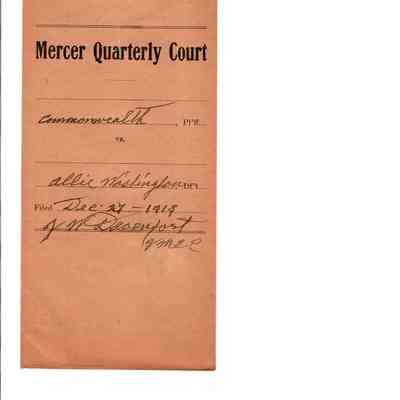 Mercer Quarterly Court
Commonwealth PPff.
vs.
Allie Washington Dft
Filed Dec 27 - 1919
J W Davenport